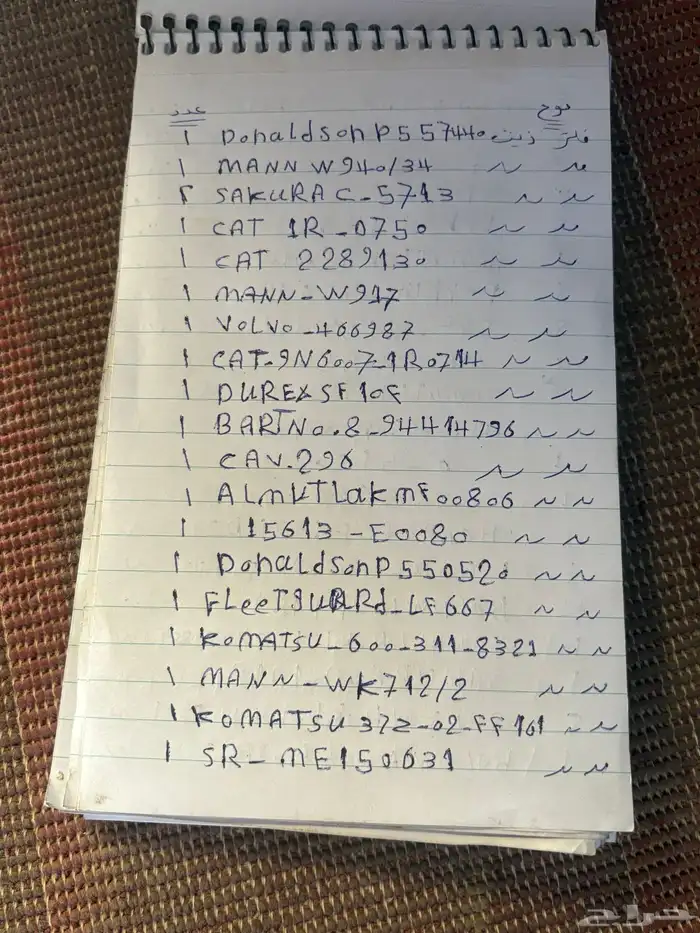 نوع عدد
فلتر زيت Donaldson P557440 ١
〃 〃 MANN W940/34 ١
〃 〃 SAKURA C-5713 ٢
〃 〃 CAT 1R-0750 ١
〃 〃 CAT 2289130 ١
〃 〃 MANN-W917 ١
〃 〃 VOLVO-466987 ١
〃 〃 CAT-9N6007-1R0714 ١
〃 〃 DUREX SF10F ١
〃 〃 BARTNo.8-94414796 ١
〃 〃 CAV.296 ١
〃 〃 ALMUTLAK MF00806 ١
〃 〃 15613-E0080 ١
〃 〃 Donaldson P550520 ١
〃 〃 FLeeTGUARd-LF667 ١
〃 〃 KOMATSU-600-311-8321 ١
〃 〃 MANN-WK712/2 ١
〃 〃 KOMATSU 372-02-FF161 ١
〃 〃 SR-ME150631 ١
حراج